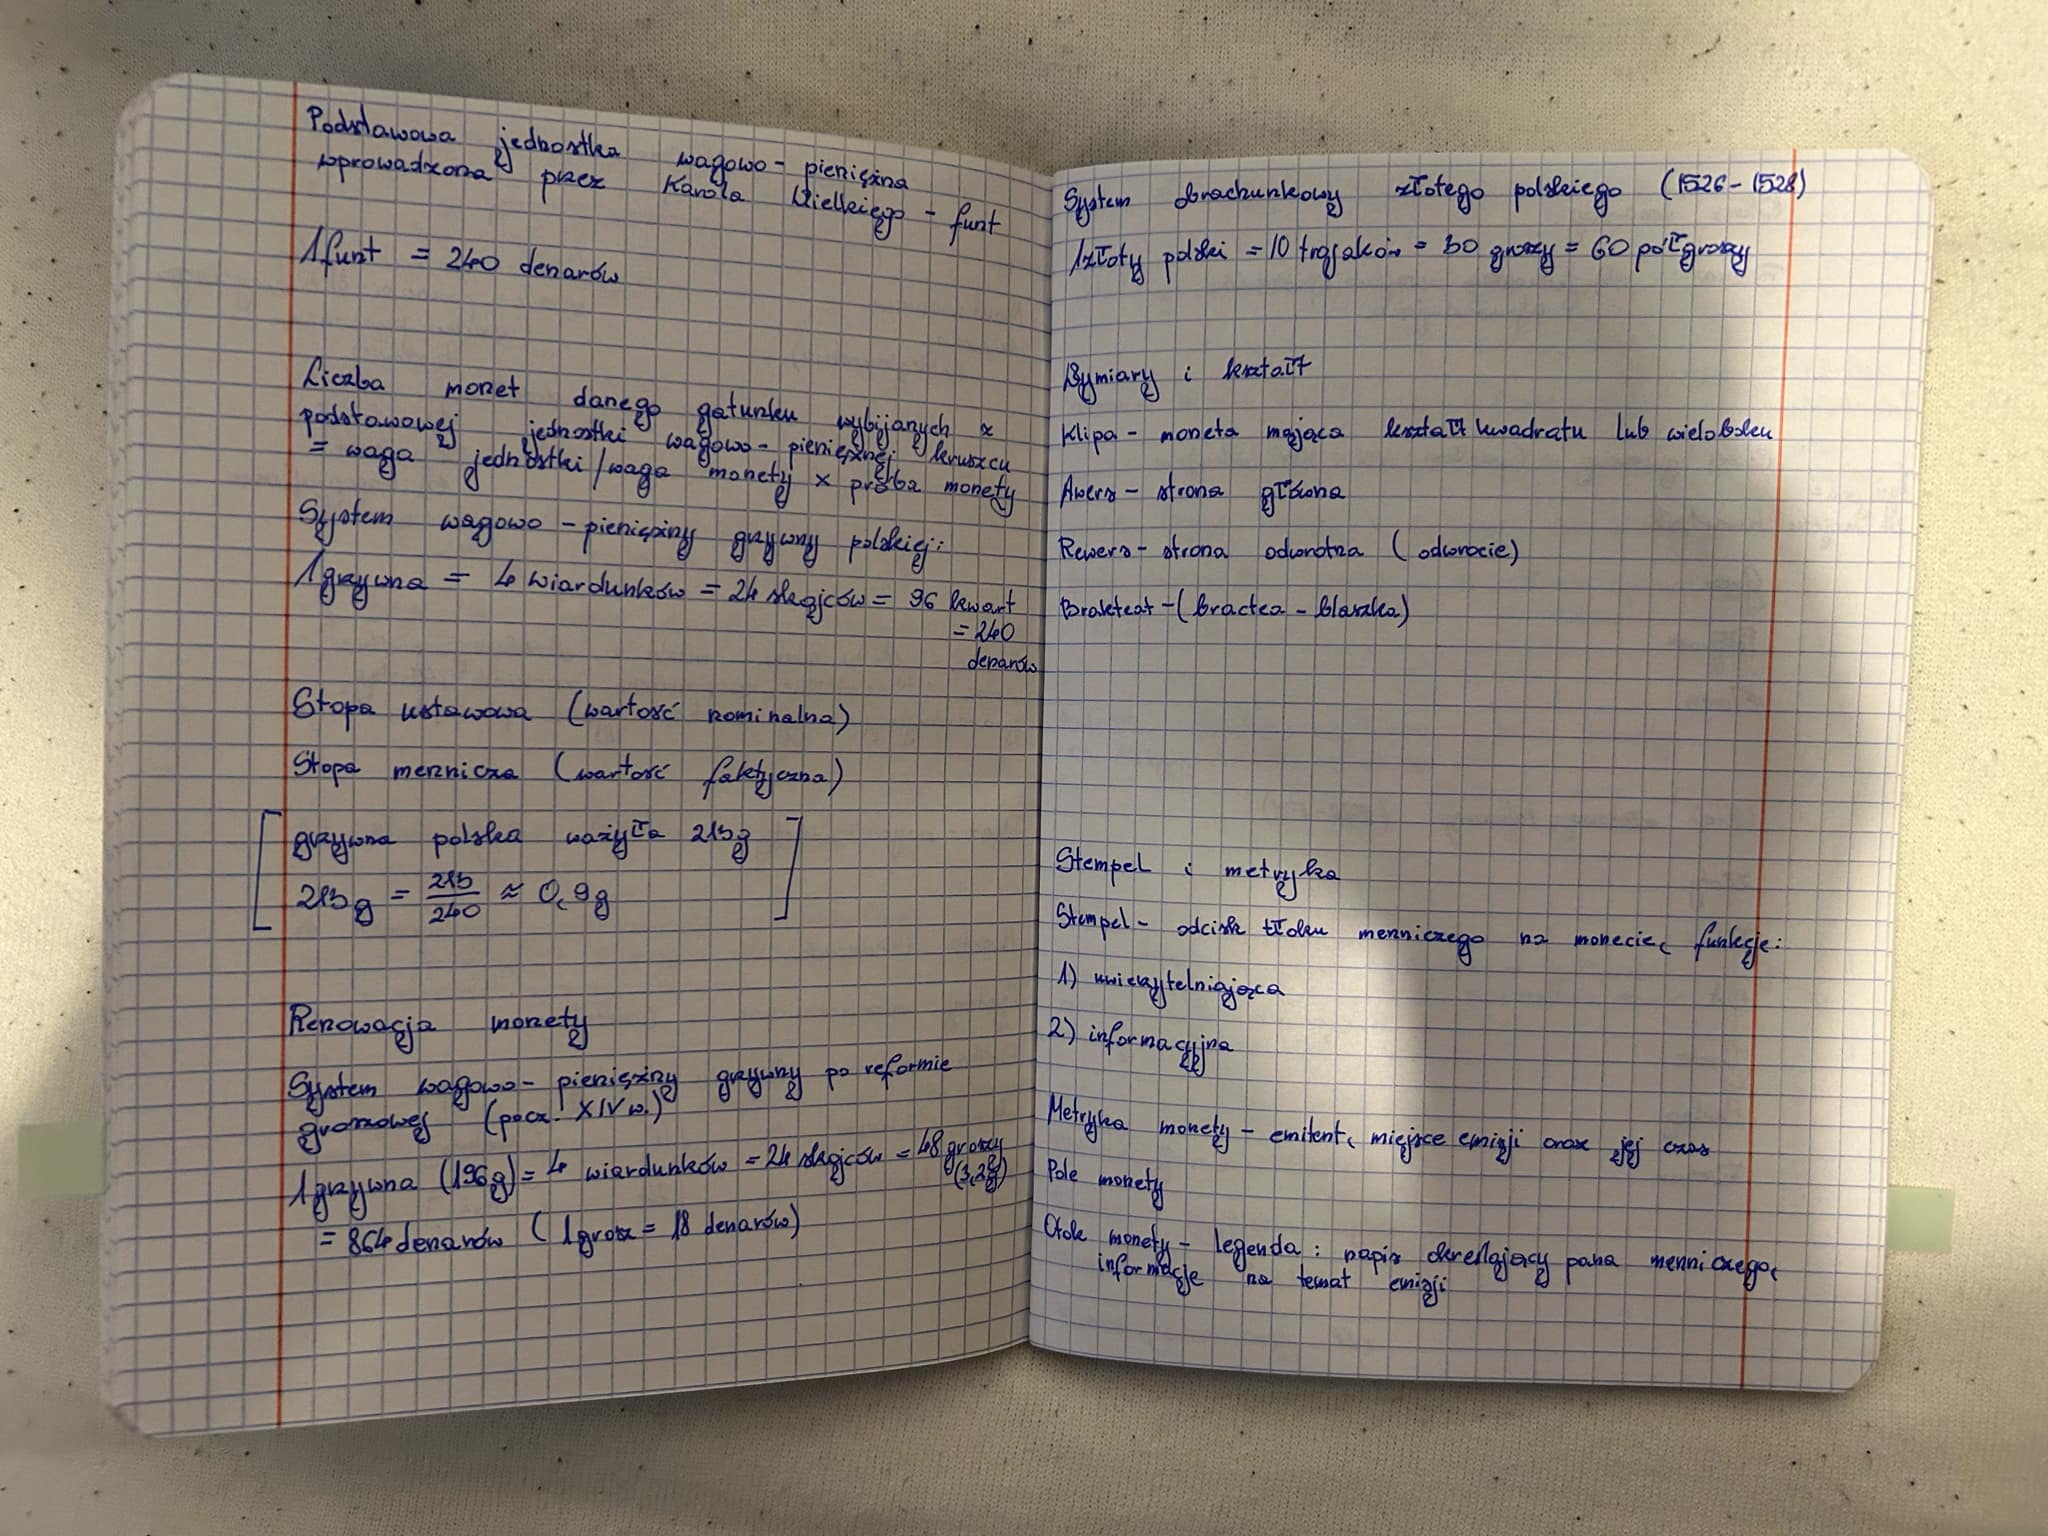 Podstawowa jednostka wagowo - pieniężna
wprowadzona przez Karola Wielkiego - funt
1 funt = 240 denarów
Liczba monet danego gatunku wybijanych z
podstawowej jednostki wagowo - pieniężnej kruszcu
= waga jednostki / waga monety × próba monety
System wagowo - pieniężny grzywny polskiej:
1 grzywna = 4 wiardunków = 24 skojców = 96 kwart
= 240
denarów
Stopa ustawowa (wartość nominalna)
Stopa mennicza (wartość faktyczna)
grzywna polska ważyła 213g
213g = 213/240 ≈ 0,9g
Renowacja monety
System wagowo - pieniężny grzywny po reformie
groszowej (pocz. XIV w.)
1 grzywna (196g) = 4 wiardunków = 24 skojców = 48 groszy
(3,2g)
= 864 denarów (1 grosz = 18 denarów)
System obrachunkowy złotego polskiego (1526 - 1528)
1 złoty polski = 10 trojaków = 30 groszy = 60 półgroszy
Wymiary i kształt
Klipa - moneta mająca kształt kwadratu lub wieloboku
Awers - strona główna
Rewers - strona odwrotna (odwrocie)
Brakteat - (bractea - blaszka)
Stempel i metryka
Stempel - odcisk tłoku menniczego na monecie, funkcje:
1) uwierzytelniająca
2) informacyjna
Metryka monety - emitent, miejsce emisji oraz jej czas
Pole monety
Otok monety - legenda: napis określający pana menniczego,
informacje na temat emisji